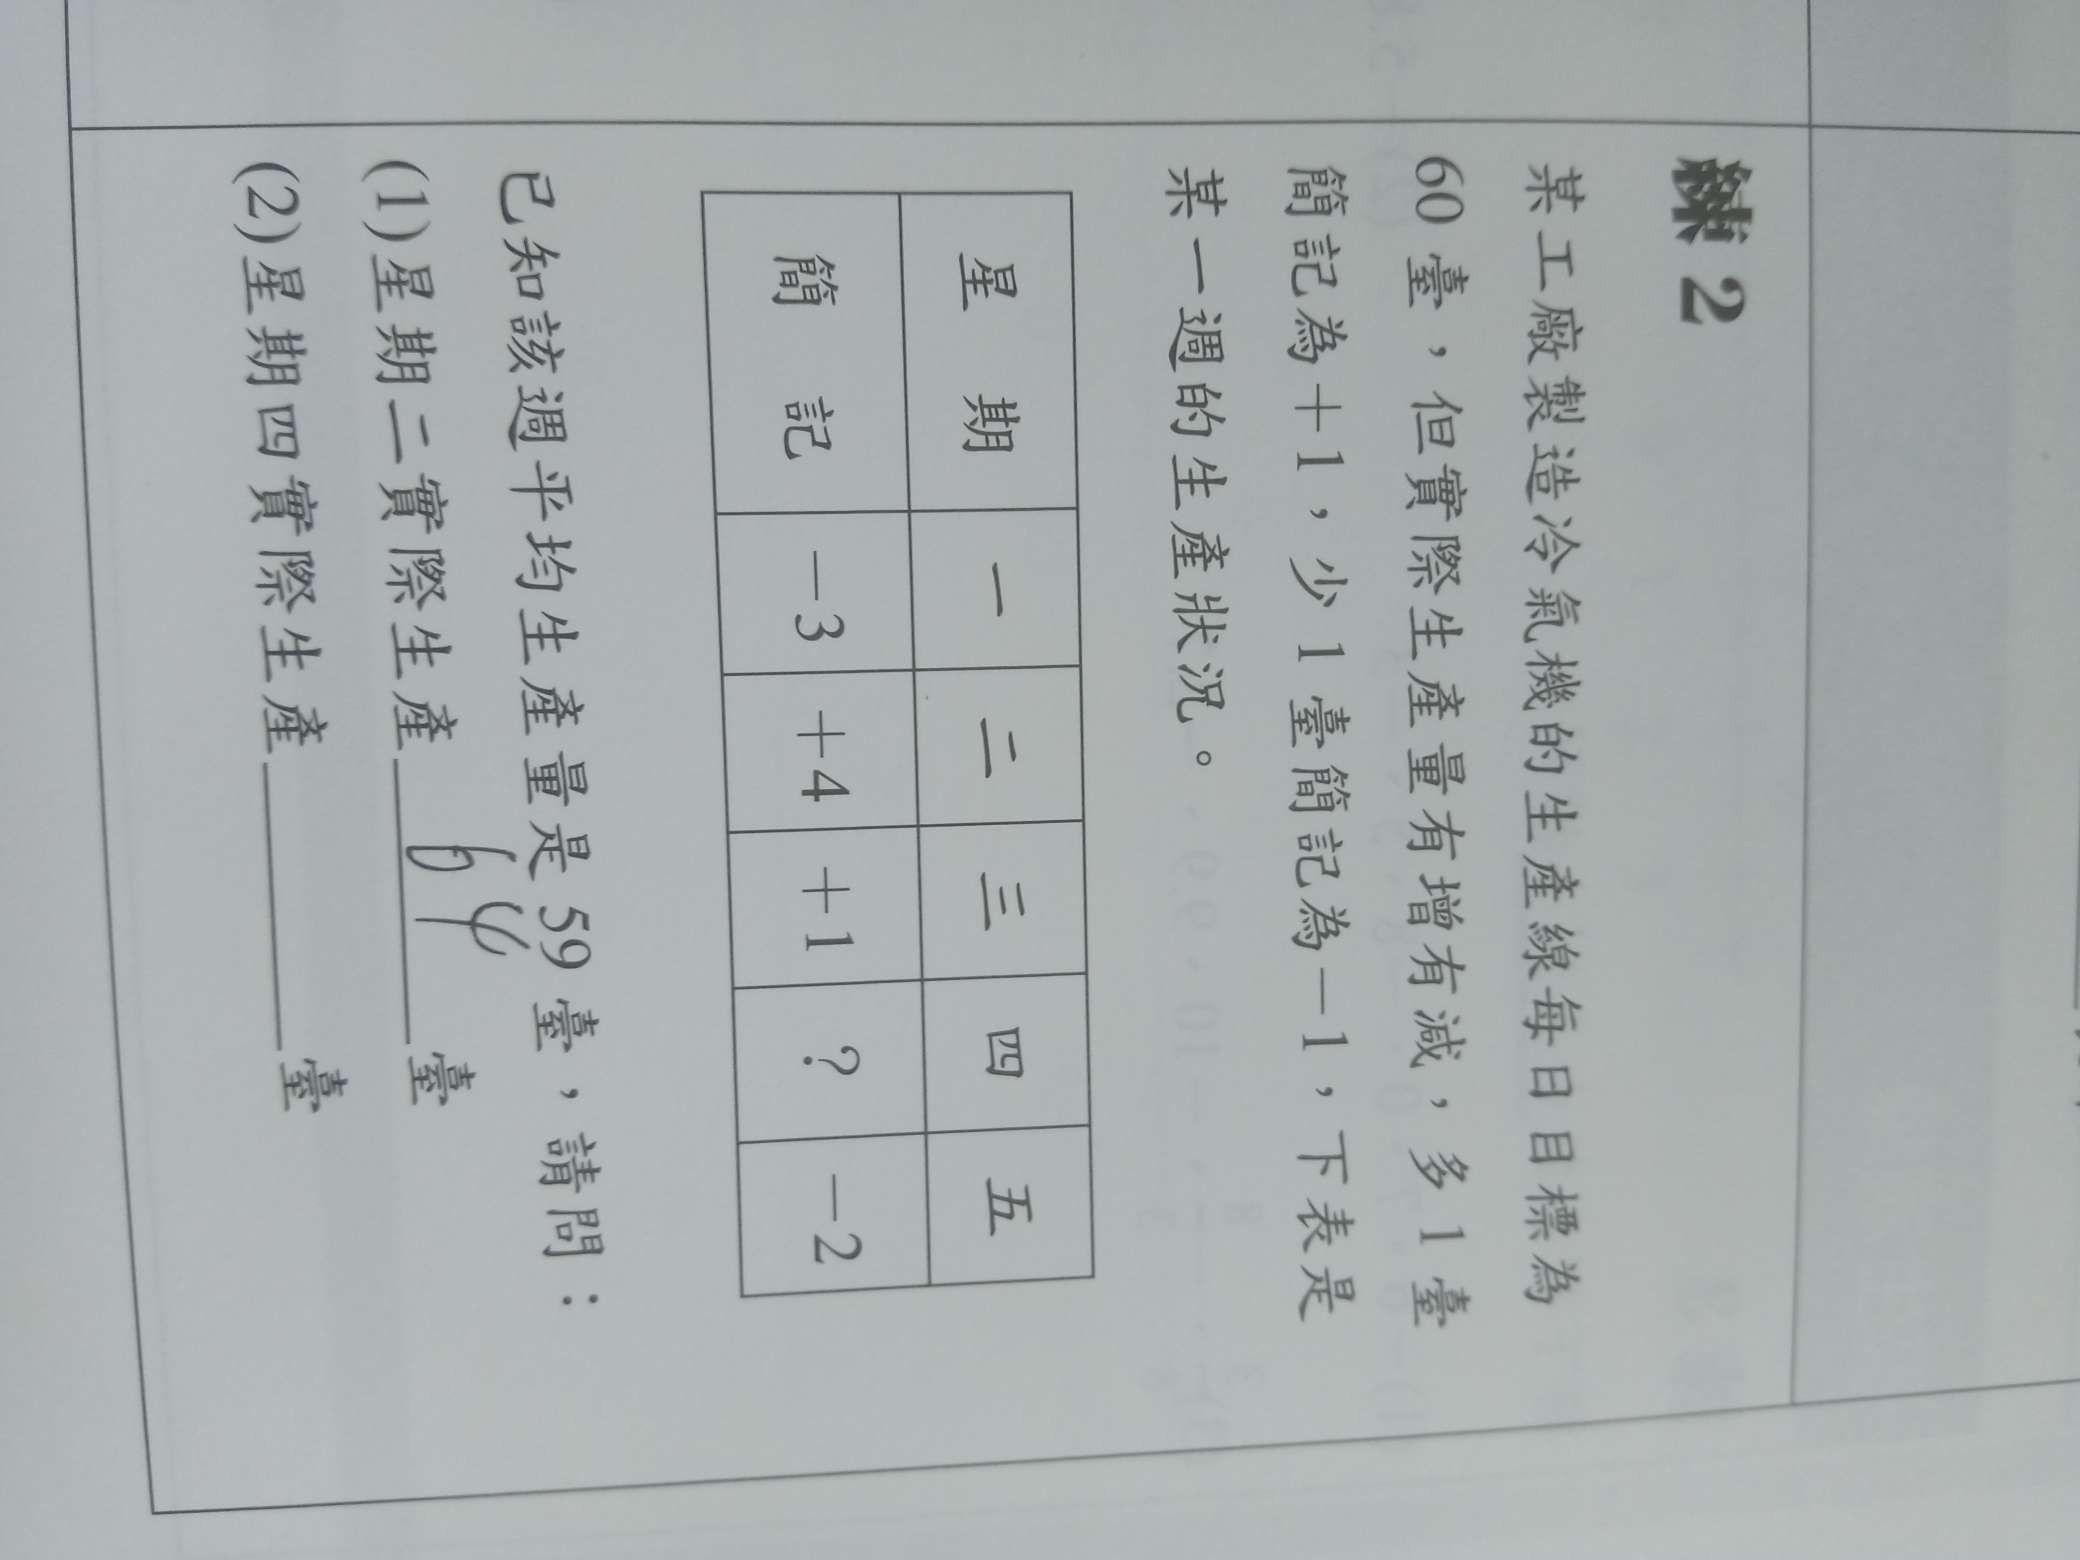 練2
某工廠製造冷氣機的生產線每日目標為
60臺，但實際生產量有增有減，多1臺
簡記為＋1，少1臺簡記為－1，下表是
某一週的生產狀況。
星期 一 二 三 四 五
簡記 －3 ＋4 ＋1 ？ －2
已知該週平均生產量是59臺，請問：
(1)星期二實際生產 64 臺
(2)星期四實際生產______臺